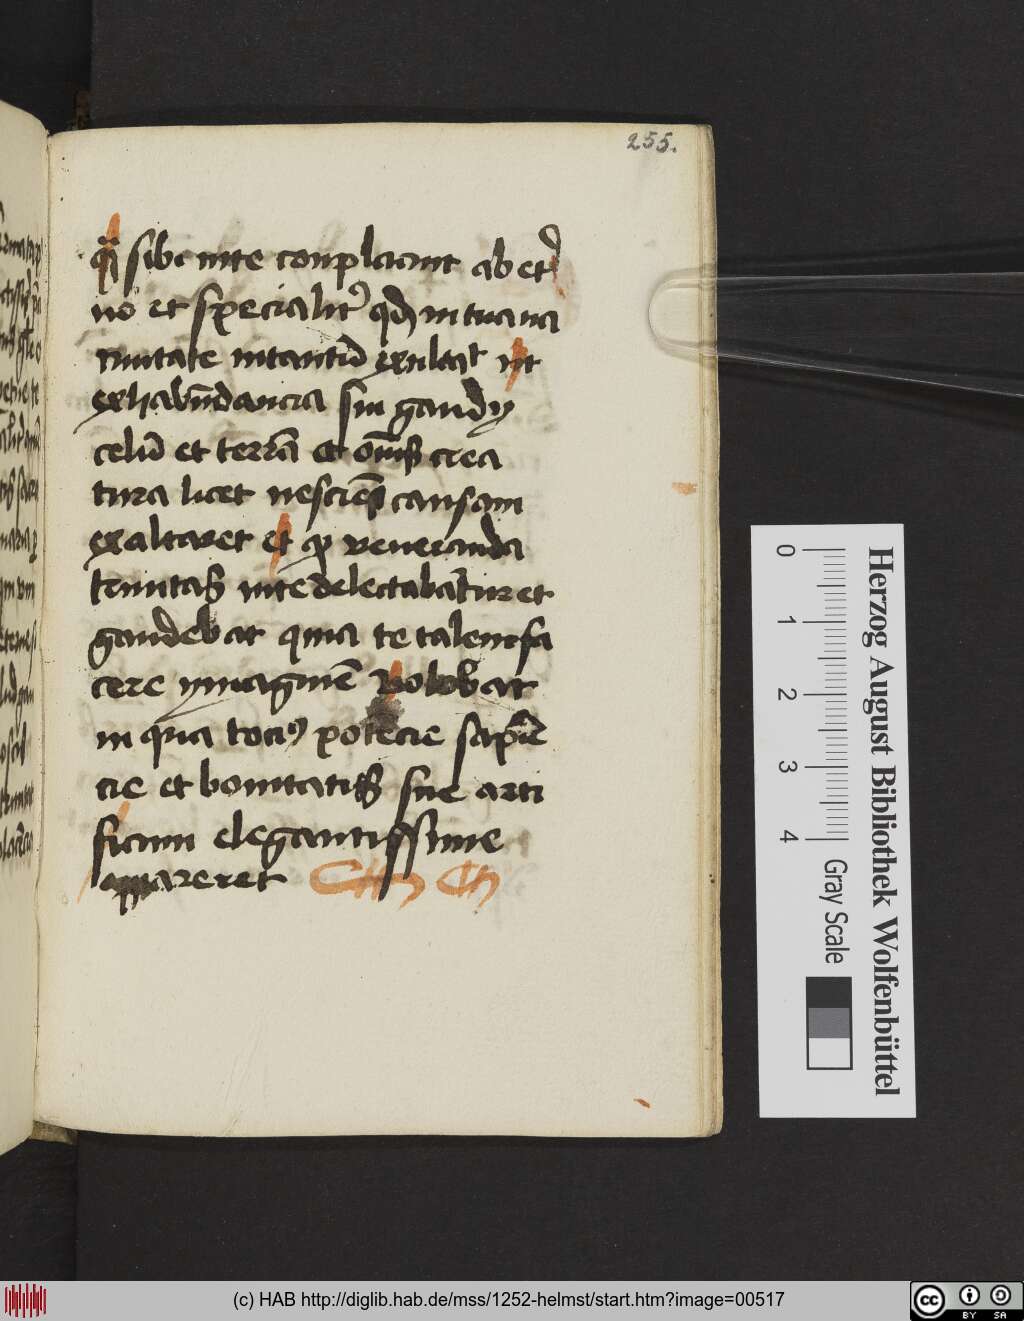 255.
qꝫ sibi in te conplacant ab et͛
no et specialit͛ qd̄ in tua na
tiuitate intantū exultat ut
exhabūdancia sui gaudij
celū et terrā et om̄s crea
tura licet nesciēs causam
exaltaret et qꝫ veneranda
trinitas in te delectabat̄ur et
gaudebat quia te talem fa
cere ymaginē volebat
in qua tociꝰ potēcie sapiē
cie et bonitatis sue arti
ficium elegantissime
appareret
Herzog August Bibliothek Wolfenbüttel
0 1 2 3 4
Gray Scale
(c) HAB http://diglib.hab.de/mss/1252-helmst/start.htm?image=00517
cc BY SA